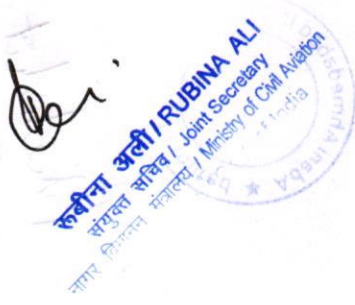 रूबीना अली / RUBINA ALI
संयुक्त सचिव / Joint Secretary
नागर विमानन मंत्रालय / Ministry of Civil Aviation
of India